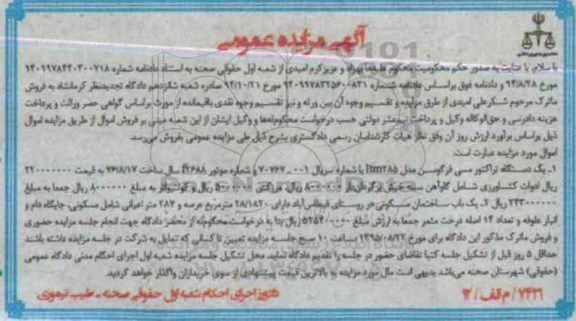 آگهی مزایده عمومی
با سلام، با عنایت به صدور حکم محکومیت محکوم علیهما بهزاد و عزیز کرم امیدی از شعبه اول حقوقی صحنه به استناد دادنامه شماره ۹۴۰۹۹۷۸۴۳۰۳۰۰۷۱۸
مورخ ۹۴/۸/۲۸ و دادنامه فوق براساس دادنامه شماره ۹۴۰۹۹۷۸۳۲۵۶۰۰۸۳۱ مورخ ۹۴/۱۰/۲۱ صادره شعبه شانزدهم دادگاه تجدیدنظر کرمانشاه به فروش
ماترک مرحوم شکرعلی امیدی از طرق مزایده و تقسیم وجوه آن بین ورثه و نیز تقسیم وجوه نقدی باقیمانده از مورث براساس گواهی حصر وراثت و پرداخت
هزینه دادرسی و حق‌الوکاله وکیل و پرداخت نیم‌عشر دولتی حسب درخواست محکوم‌له‌ها و وکیل ایشان از این شعبه مبنی بر فروش اموال از طریق مزایده اموال
ذیل براساس برآورد ارزش روز آن وفق نظر هیات کارشناسان رسمی دادگستری بشرح ذیل طی مزایده عمومی بفروش می‌رسد
اموال مورد مزایده عبارت است:
۱- یک دستگاه تراکتور مسی فرگوسن مدل Itm۲۸۵ با شماره سریال ۷۰۷۶۷-۰۰۱ و شماره موتور ۲۶۸۸ سال ساخت به قیمت ۲۲۰۰۰۰۰۰۰
ریال ادوات کشاورزی شامل گاوآهن سه خیش برگردان‌دار ریال، مرزکش ریال و کولتیواتور به مبلغ ۸۰۰۰۰۰۰ ریال جمعا به مبلغ
۲۴۳۰۰۰۰۰۰ ریال ۲- یک باب ساختمان مسکونی در روستای فیض‌آباد دارای ۲۸/۱۸۲۰ مترمربع عرصه و ۲۸۷ متر اعیانی شامل مسکونی، جایگاه دام و
انبار علوفه و تعداد ۱۴ اصله درخت مثمر جمعا به ارزش مبلغ ۵۲۵۴۰۰۰۰۰ ریال بنا به درخواست محکوم‌له از محضر دادگاه جهت انجام جلسه مزایده حضوری
و فروش ماترک مذکور این دادگاه برای مورخ ۱۳۹۵/۰۸/۲۲ ساعت ۱۰ صبح جلسه مزایده تعیین تا کسانی که تمایل به شرکت در جلسه مزایده داشته باشند
حداقل ۵ روز قبل از تشکیل جلسه کتبا تقاضای حضور در جلسه را تقدیم دادگاه نمایند محل تشکیل جلسه مزایده شعبه اول اجرای احکام مدنی دادگاه عمومی
(حقوقی) شهرستان صحنه می‌باشد بدیهی است مال مورد مزایده به بالاترین قیمت پیشنهادی از سوی خریداران واگذار خواهد گردید.
۷۴۳۱/ م الف/ ۱۲
دفتر اجرای احکام شعبه اول حقوقی صحنه - طیب تیموری